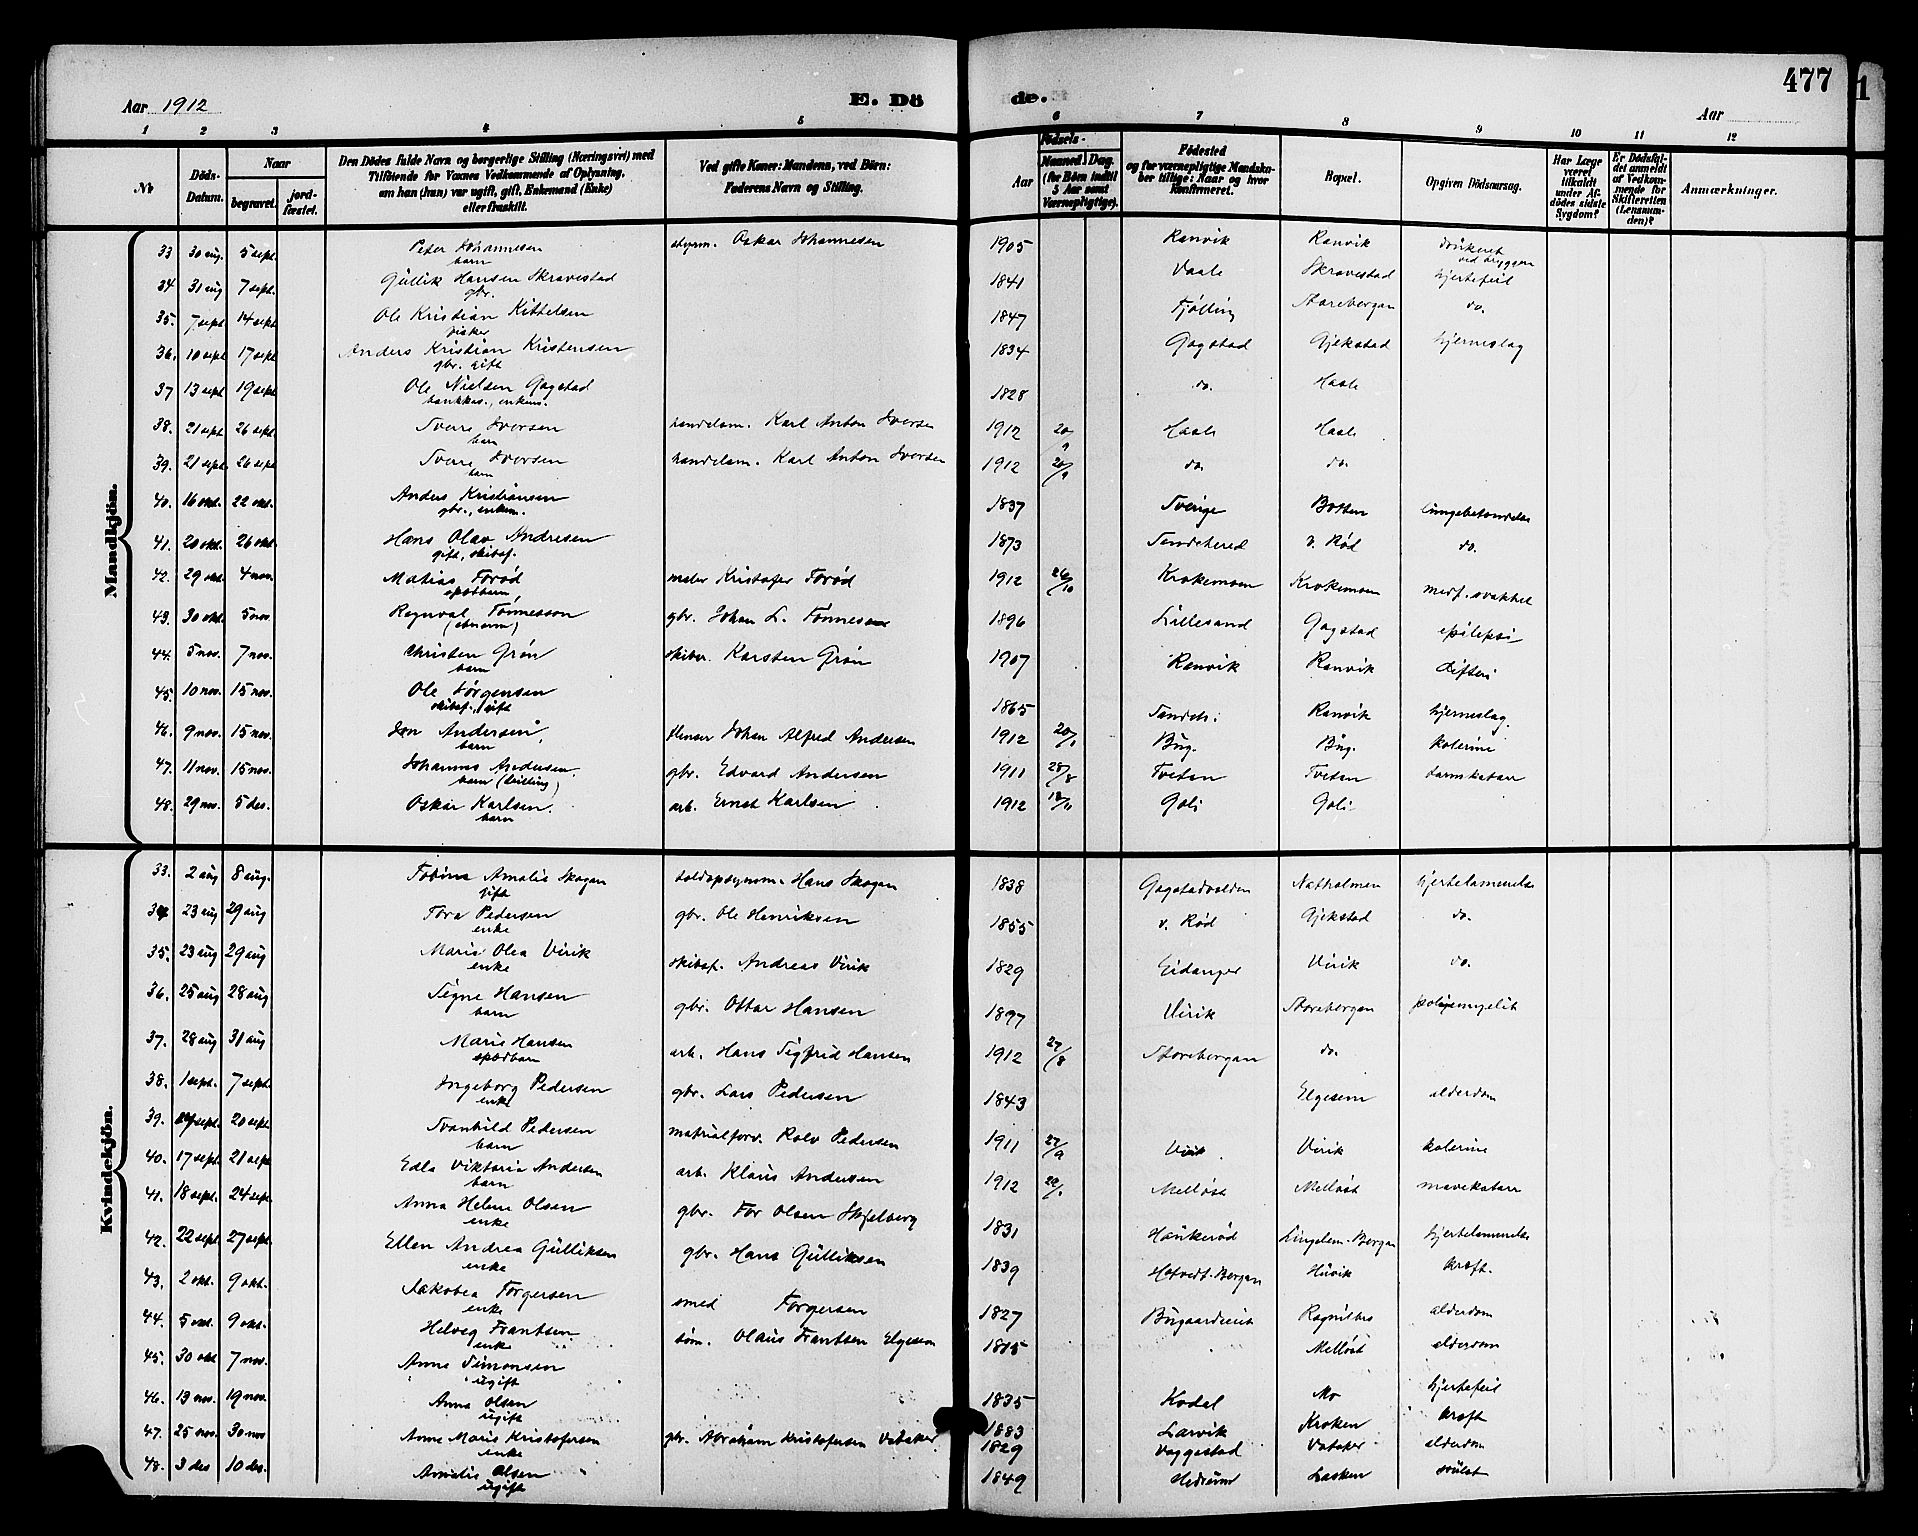 477
Aar 1912 E. Dö de. Aar
1 2 3 4 5 6 7 8 9 10 11 12
No
Döds-Datum.
Naar
begravet.
jordfæstet.
Den Dödes fulde Navn og borgerlige Stilling (Næringsvei) med Tilföiende for Voxnes Vedkommende af Oplysning, om han (hun) var ugift, gift, Enkemand (Enke) eller fraskilt.
Ved gifte Koner: Mandens, ved Börn: Faderens Navn og Stilling.
Födsels-
Aar
Maaned. Dag.
(for Börn indtil 5 Aar samt Værnepligtige).
Födested og for værnepligtige Mandskaber tillige: Naar og hvor Konfirmeret.
Bopæl.
Opgiven Dödsaarsag.
Har Læge været tilkaldt under Afdödes sidste Sygdom?
Er Dödsfaldet anmeldt af Vedkommende for Skifteretten (Lensmanden)?
Anmærkninger.
Mandkjön.
33 30 aug. 5 sept. Peter Johannesen styrm. Oskar Johannesen 1905 Ranvik Ranvik druknet
barn ved bryggen
34 31 aug 7 sept. Gullik Hansen Skravestad 1841 Vaale Skravestad hjertefeil
gbr.
35. 7 sept 14 sept Ole Kristian Kittelsen 1847 Tjølling Storebergan do.
fisker
36. 10 sept 17 sept Anders Kristian Kristensen 1834 Gogstad Gjekstad hjerneslag
gbr. gift
37 13 sept 19 sept Ole Nielsen Gogstad 1828 do. Hasle
bankkas., enkem.
38. 21 sept 26 sept. Sverre Iversen handelsm. Karl Anton Iversen 1912 20/9 Hasle Hasle
barn
39. 21 sept. 26 sept Sverre Iversen handelsm. Karl Anton Iversen 1912 20/9 do. do.
barn
40. 16 okt. 22 okt. Anders Kristiansen 1837 Sverige Botten lungebetændelse
gbr., enkem.
41. 20 okt. 26 okt. Hans Olav Andresen 1873 Sandeherred v. Rød do.
gift, skibsf.
42. 29 okt. 4 nov. Matias Forød maler Kristofer Forød 1912 26/10 Krokemoen Krokemoen medf. svakhet
spædbarn,
43. 30 okt. 5 nov. Ragnval Tønnesson gbr. Johan L. Tønnesen 1896 Lillesand Gogstad epilepsi
(abnorm)
44. 5 nov. 7 nov. Christen Grøn skibsr. Karsten Grøn 1907 Ranvik Ranvik difteri
barn
45. 10 nov. 15 nov. Ole Jørgensen 1865 Sandeh. Ranvik hjerneslag.
skibsf., gift
46. 9 nov. 15 nov. Jon Andersen flenser Johan Alfred Andersen 1912 20/1 Bug. Bug. kolerine
barn
47. 11 nov. 15 nov. Johannes Andersen. gbr. Edvard Andersen 1911 28/8 Tveten Tveten tarmkatarr
barn (tvilling)
48. 29 nov. 5 des. Oskar Karlsen. arb. Ernst Karlsen 1912 Goli Goli
barn
Kvindekjön.
33. 2 aug 8 aug. Tobine Amalie Skogan toldopsynsm. Hans Skogan 1838 Gogstadvolden Natholmen hjertelammelse
gift
34 23 aug 29 aug Tora Pedersen gbr. Ole Henriksen 1855 v. Rød Gjekstad do.
enke
35. 23 aug 29 aug Marie Olea Virik skibsf. Andreas Virik 1829 Eidanger Virik do.
enke
36. 25 aug 28 aug Signe Hansen gbr. Ottar Hansen 1897 Virik Storebergan poliomyelit
barn
37. 28 aug 31 aug Marie Hansen arb. Hans Sigfrid Hansen 1912 27/8 Storebergan do.
spædbarn
38. 1 sept. 7 sept. Ingeborg Pedersen gbr. Lars Pedersen 1843 Elgesem alderdom
enke
39. sept. 20 sept Svanhild Pedersen matrialforv. Rolv Pedersen 1911 27/9 Virik. Virik kolerine
barn
40. 17 sept. 21 sept Edla Viktoria Andersen arb. Klaus Andersen 1912 Melløst Melløst mavekatarr
barn
41. 18 sept. 24 sept. Anna Helene Olsen gbr. Tor Olsen Skjelberg 1831 Haukerød Lingelem-Bergan hjertelammelse
enke
42. 22 sept. 27 sept. Ellen Andrea Gulliksen gbr. Hans Gulliksen 1839 Hotvedt-Bergan Huvik kræft.
enke
43. 2 okt. 9 okt. Jakobea Torgersen smed Torgersen 1827 Bugaardeiet Ragnilbo alderdom
enke
44. 5 okt. 9 okt. Helvig Frantsen tøm. Olaus Frantsen Elgesem Melløst alderdom
enke
45. 30 okt 7 nov. Anne Simonsen 1835 Kodal Mo hjertefeil
ugift
46. 13 nov. 19 nov. Anna Olsen 1883 Larvik Kroken kræft
ugift
47. 25 nov. 30 nov Anne Marie Kristofersen gbr. Abraham Kristofersen Vataker 1829 Vaggestad Vataker alderdom
enke
48. 3 des 10 des. Amalie Olsen 1849 Hedrum Lasken svulst
ugift